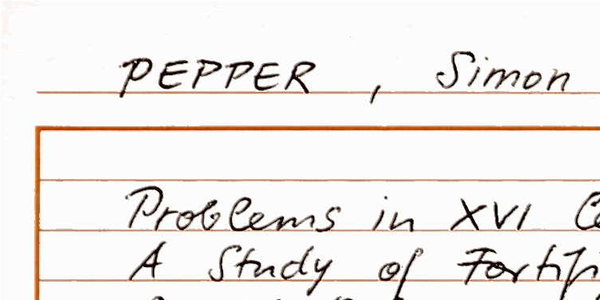 PEPPER , Simon
Problems in XVI
A Study of